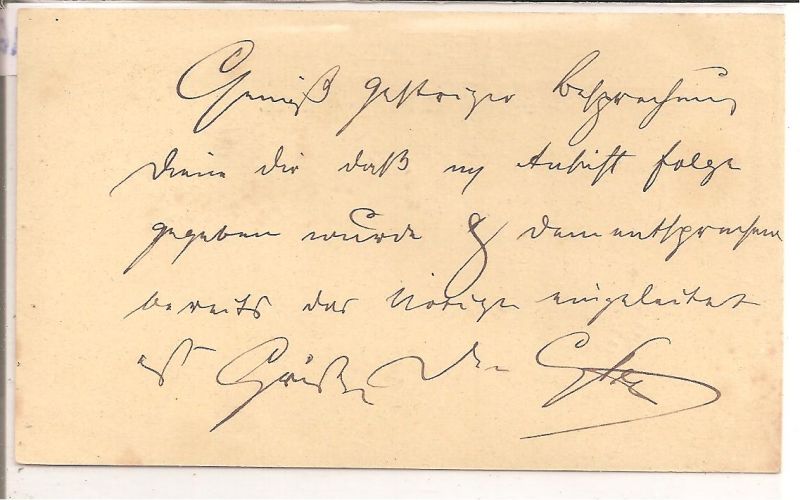 Gemäß gestriger Besprechung
diene dir daß Ansicht folge
gegeben wurde & dementsprechend
bereits das Nötige eingeleitet
ist Grüße Dein